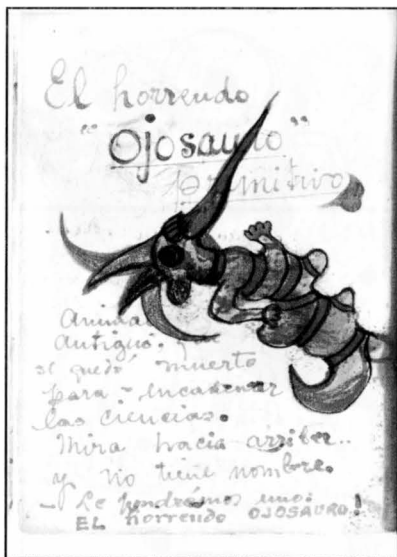 El horrendo
"Ojosauro"
primitivo
Animal
antiguo.
se quedó muerto
para encadenar
las ciencias.
Mira hacia arriba..
y no tiene nombre.
- Le pondrémos uno:
EL horrendo OJOSAURO!